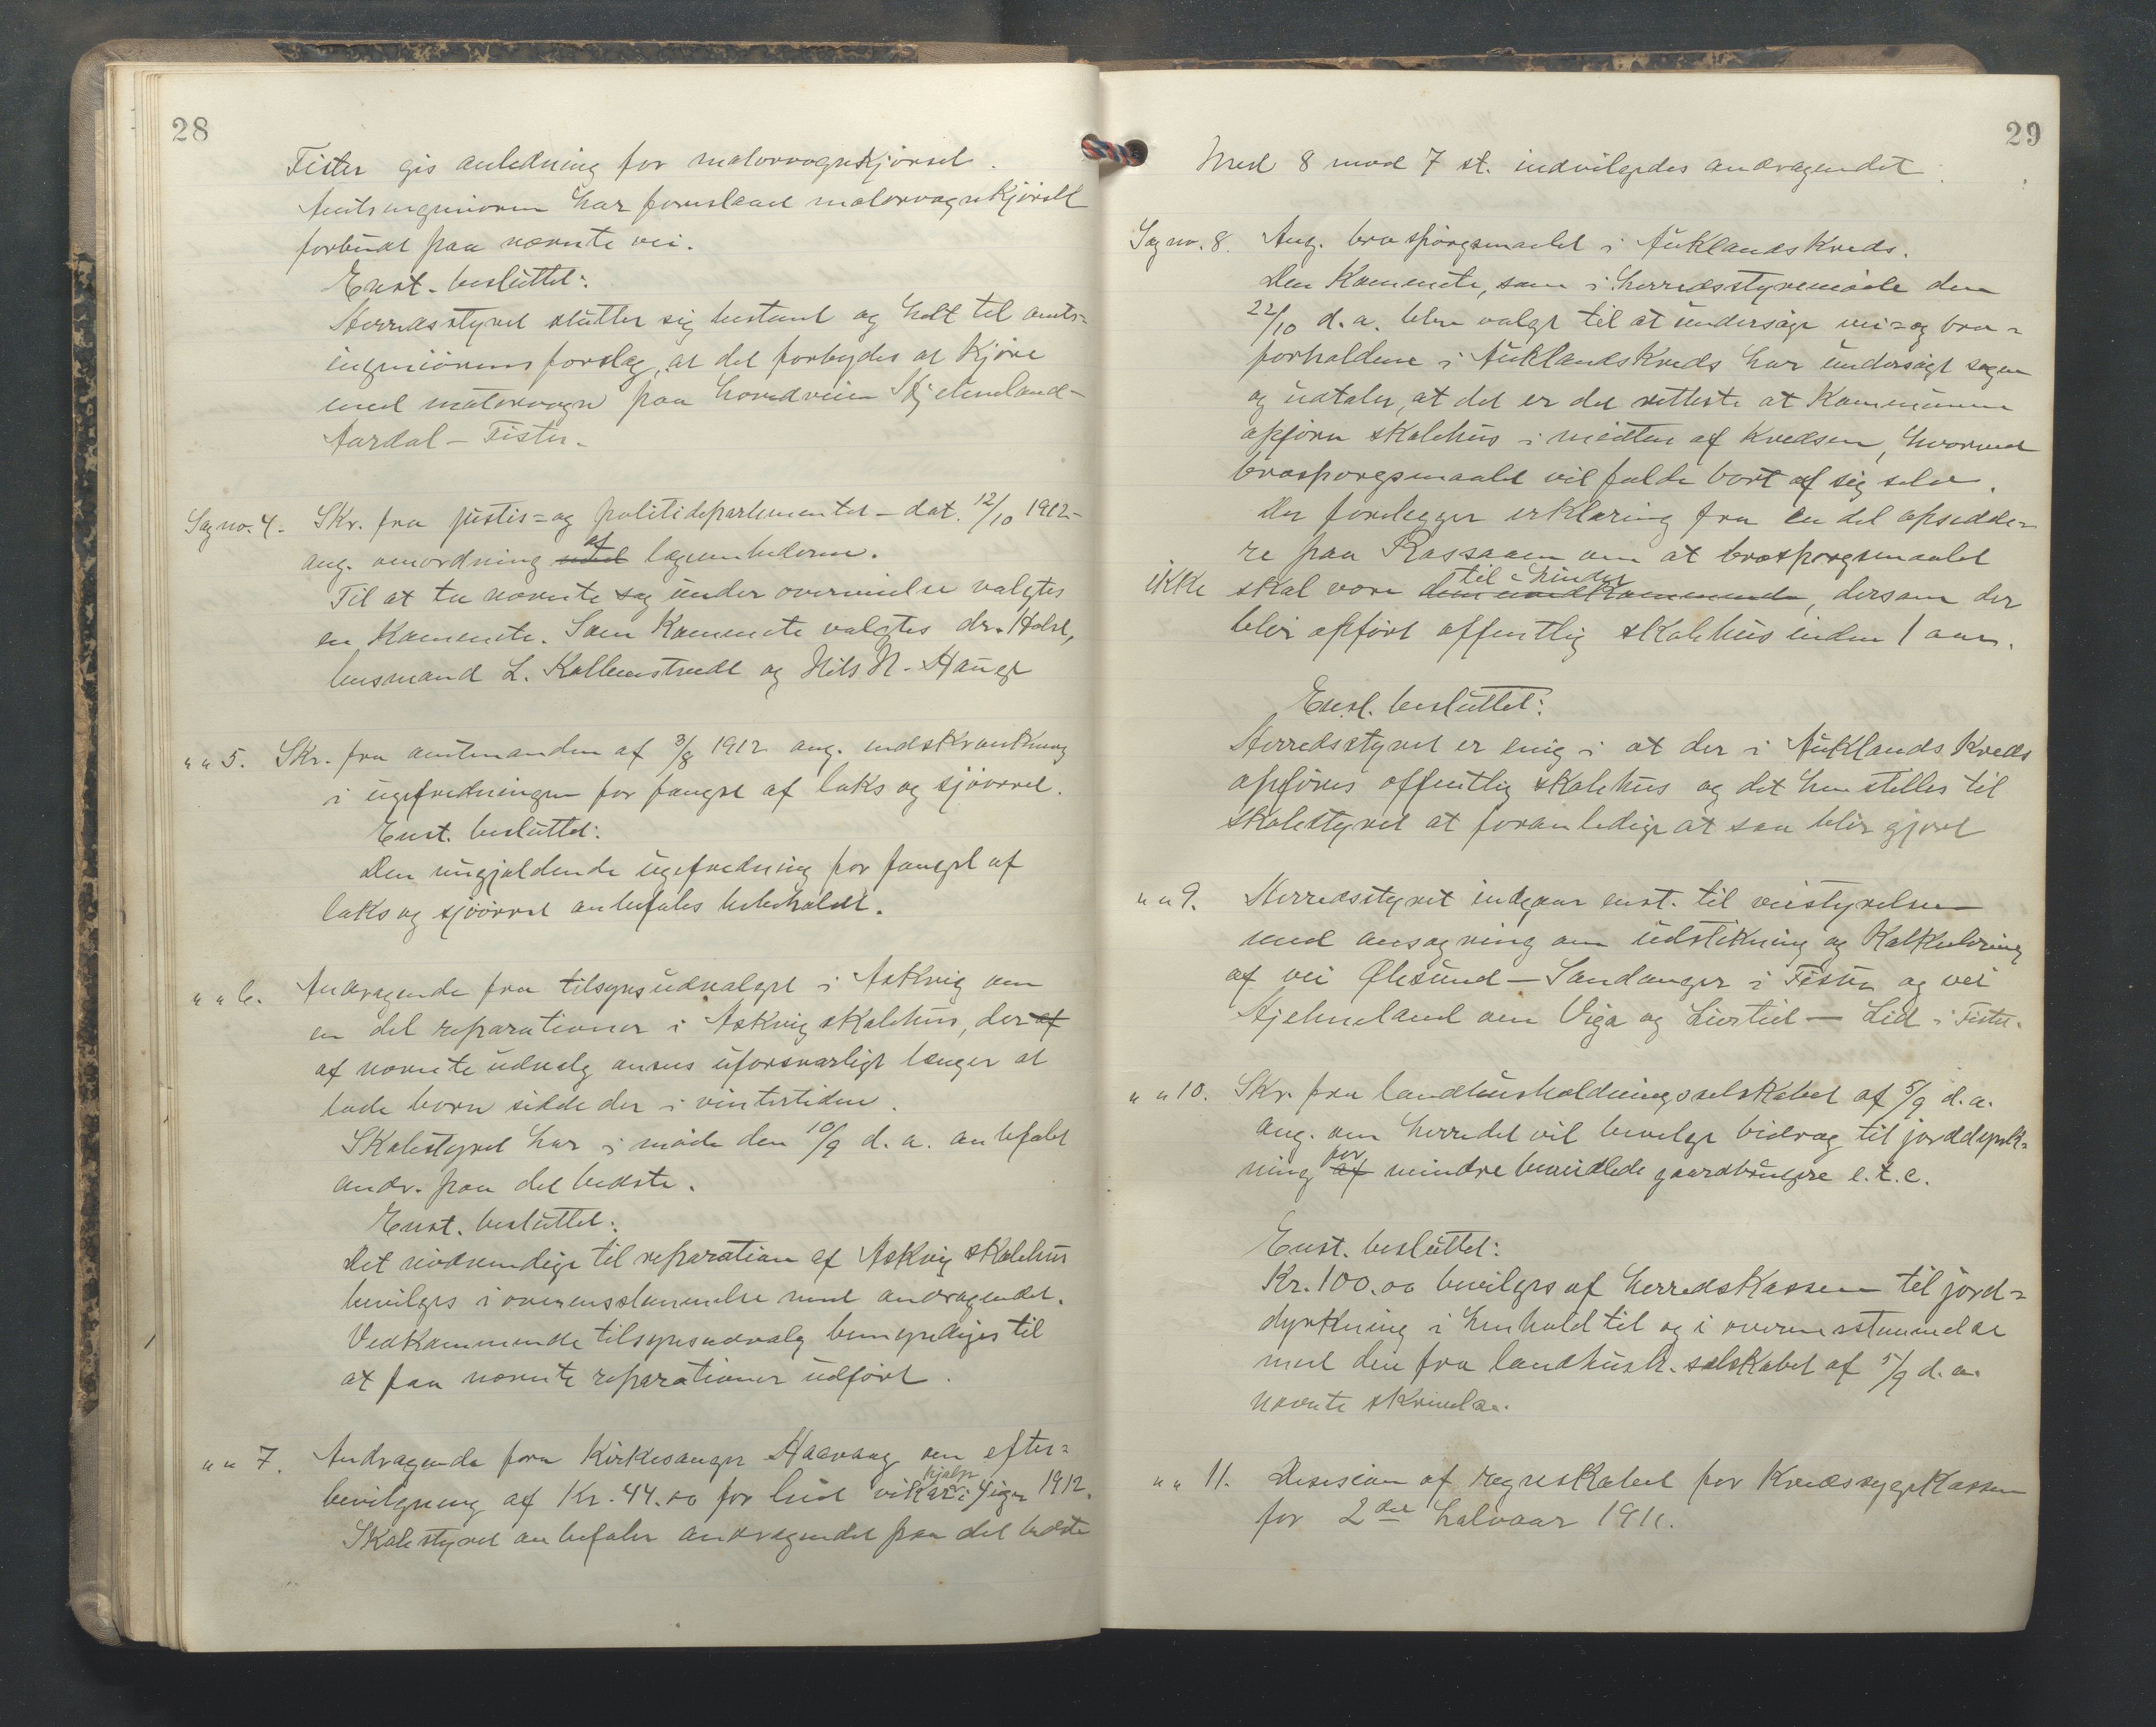 28
Fister gis anledning for motorvognkjørsel.
Amtsingeniøren har foreslaaet motorvognkjørsel
forbudt paa nævnte vei.
Enst. besluttet:
Herredsstyret slutter sig bestemt og helt til amts=
ingeniørens forslag, at det forbydes at kjøre
med motorvogn paa hovedveien Hjelmeland-
Aardal - Fister.
Sag no. 4. Skr. fra justis= og politidepartementet - dat. 12/10 1912 -
ang. omordning af lægeembederne.
Til at ta nævnte sag under overveielse valgtes
en komite. Som komite valgtes dr. Holst,
lensmand L. Kollenstvedt og Nils N. Hauge
" " 5. Skr. fra amtmanden af 3/8 1912 ang. indskrænkning
i ugefredningen for fangst af laks og sjøørret.
Enst. besluttet:
Den nugjældende ugefredning for fangst af
laks og sjøørret anbefales bibeholdt.
" " 6. Andragende fra tilsynsudvalget i Askvig om
en del reparationer i Askvig skolehus, der af
af nævnte udvalg ansees uforsvarligt længer at
lade børn sidde der i vintertiden.
Skolestyret har i møde den 10/9 d. a. anbefalt
andr. paa det bedste.
Enst. besluttet:
Det nødvendige til reparation af Askvig skolehus
bevilges i overensstemmelse med andragendet.
Vedkommende tilsynsudvalg bemyndiges til
at faa nævnte reparationer udført.
" " 7. Andragende fra kirkesanger Haavaag om efter=
bevilgning af Kr. 44.00 for leiet vikarhjælp i 4 uger 1912.
Skolestyret anbefaler andragendet paa det bedste
29
Med 8 mod 7 st. indvilgedes andragendet.
Sag no. 8. Ang. brospørgsmaalet i Auklandskreds.
Den komite, som i herredsstyremøde den
22/10 d. a. blev valgt til at undersøge vei= og bro=
forholdene i Auklandskreds har undersøgt sagen
og udtaler, at det er det retteste at kommunen
opfører skolehus i midten af kredsen, hvorved
brospørgsmaalet vil falde bort af sig selv.
Der forelegger erklæring fra en del opsidde=
re paa Rassaaen om at brospørgsmaalet
ikke skal være til hinder, dersom der
blir opført offentlig skolehus inden 1 aar.
Enst. besluttet:
Herredsstyret er enig i at der i Auklands kreds
opføres offentlig skolehus og det henstilles til
skolestyret at foranledige at saa blir gjort
" " 9. Herredsstyret indgaar enst. til veistyrelsen
med ansøgning om udstikning og kalkulering
af vei Ølesund - Sandanger i Fister og vei
Hjelmeland om Viga og Liartiel - Lid i Fister.
" " 10. Skr. fra landhusholdningsselskabet af 5/9 d. a.
ang. om herredet vil bevilge bidrag til jorddyrk=
ning for mindre bemidlede gaardbrugere e.t.c.
Enst. besluttet:
Kr. 100.00 bevilges af herredskassen til jord=
dyrkning i henhold til og i overensstemmelse
med den fra landhush. selskabet af 5/9 d. a.
nævnte skrivelse.
" " 11. Desision af regnskabet for kredssygekassen
for 2det halvaar 1911.